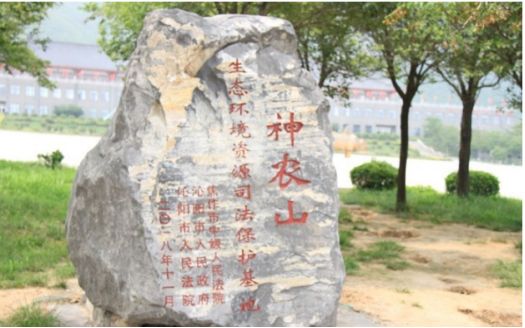 神农山
生态环境资源司法保护基地
焦作市中级人民法院
沁阳市人民政府
沁阳市人民法院
二〇一八年十一月